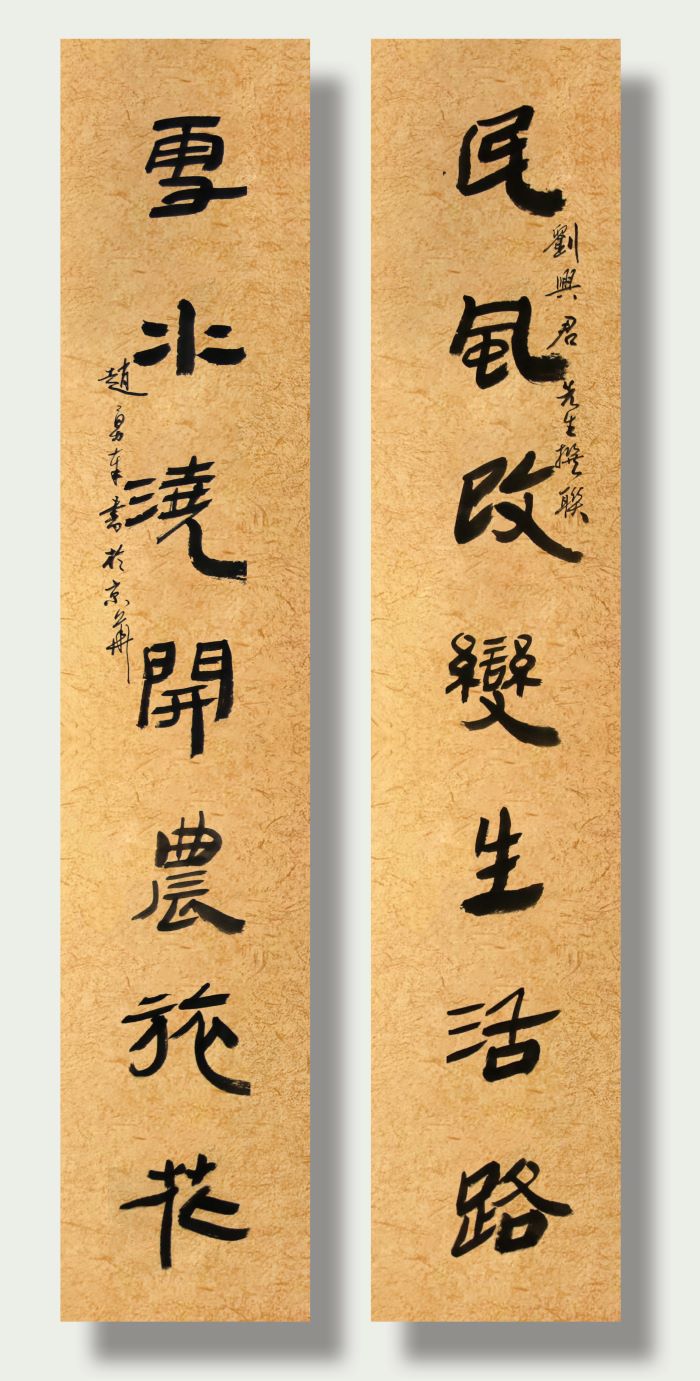 民風改變生活路
劉興君先生撰聯
雪水澆開農旅花
趙勇奉書於京華